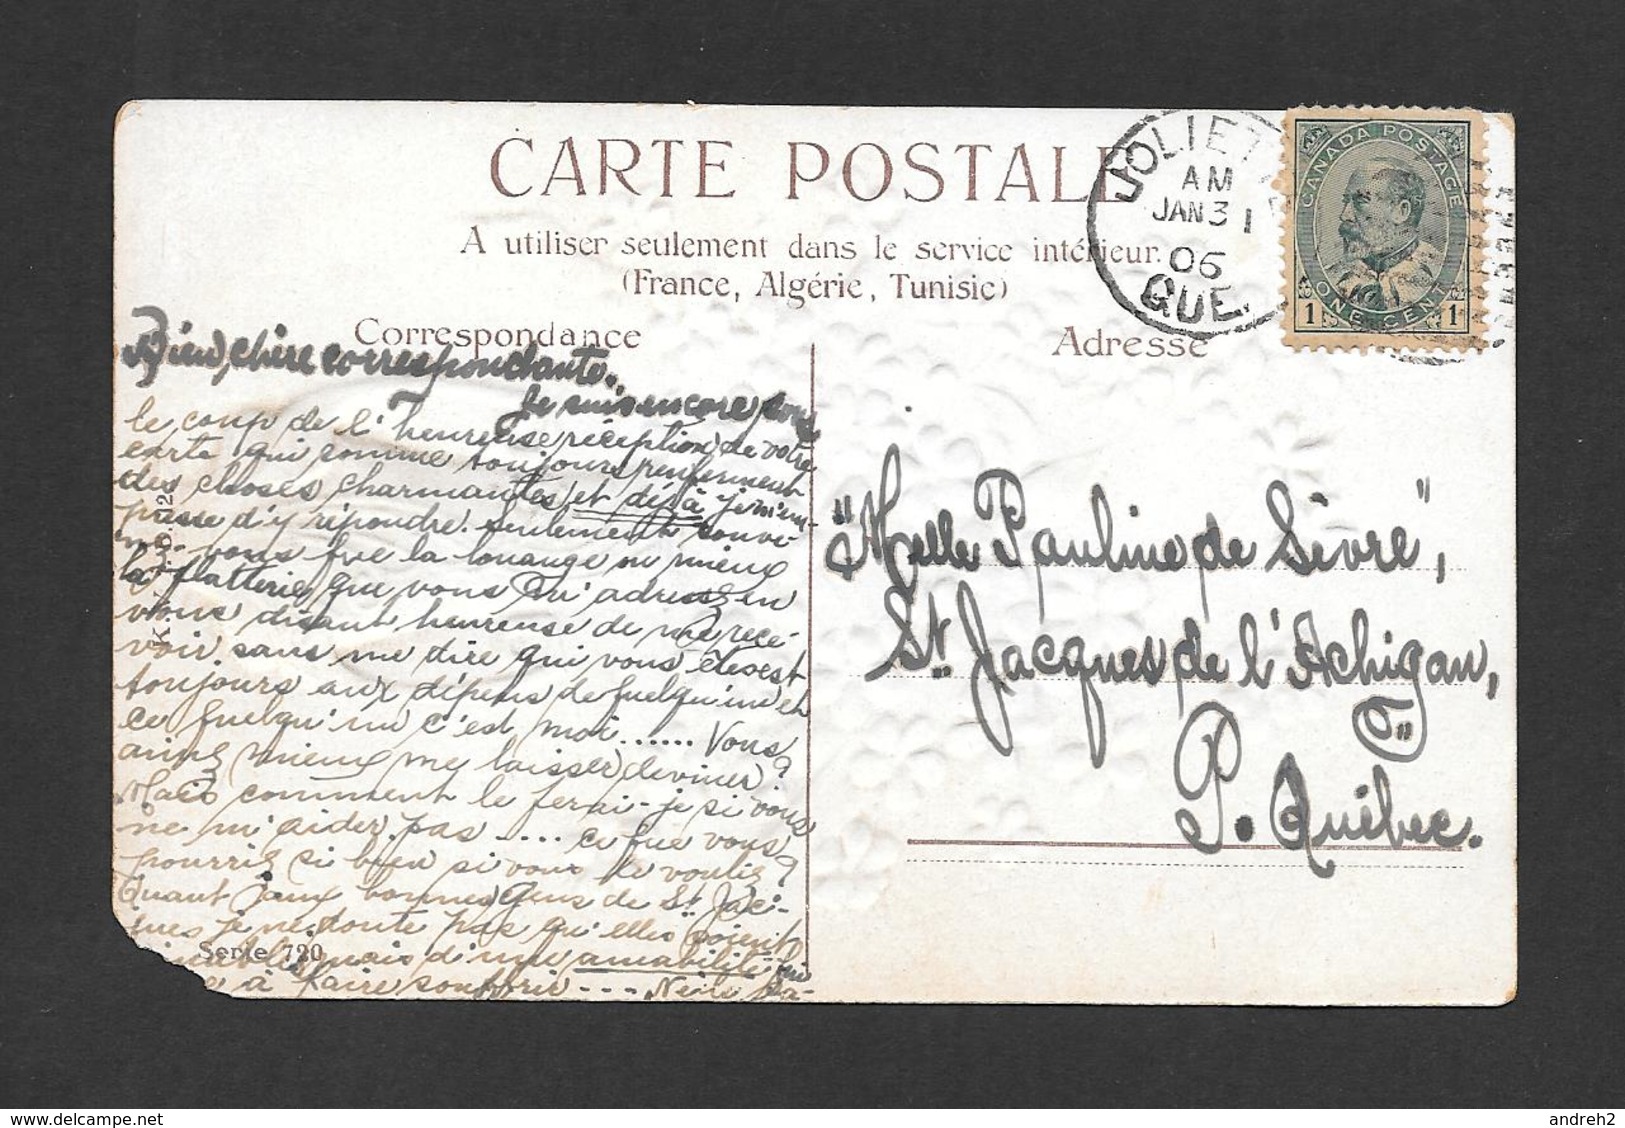 CARTE POSTALE
A utiliser seulement dans le service intérieur.
(France, Algérie, Tunisie)
Correspondance
Adresse
JOLIETTE
AM
JAN 31
06
QUE.
CANADA POSTAGE
1 ONE CENT 1
Bien chère correspondante.
Je suis encore sous
le coup de l'heureuse réception de votre
carte qui comme toujours renferment
des choses charmantes et déjà je m'em-
presse d'y répondre. Seulement souve-
vous que la louange ou mieux
la flatterie que vous m'adressez en
vous disant heureuse de me rece-
voir sans me dire qui vous êtes est
toujours aux dépens de quelqu'un et
ce quelqu'un c'est moi...... Vous
aimez mieux me laisser deviner?
Mais comment le ferai-je si vous
ne m'aidez pas .... ce que vous
pourriez si bien si vous le vouliez?
Quant aux bonnes gens de St Jac-
ques je ne doute pas qu'elles soient
mais d'une amabilité qui
à faire souffrir ----
Serie 720
"Melle Pauline de Sèvre",
St Jacques de l'Achigan,
P. Québec.
andreh2